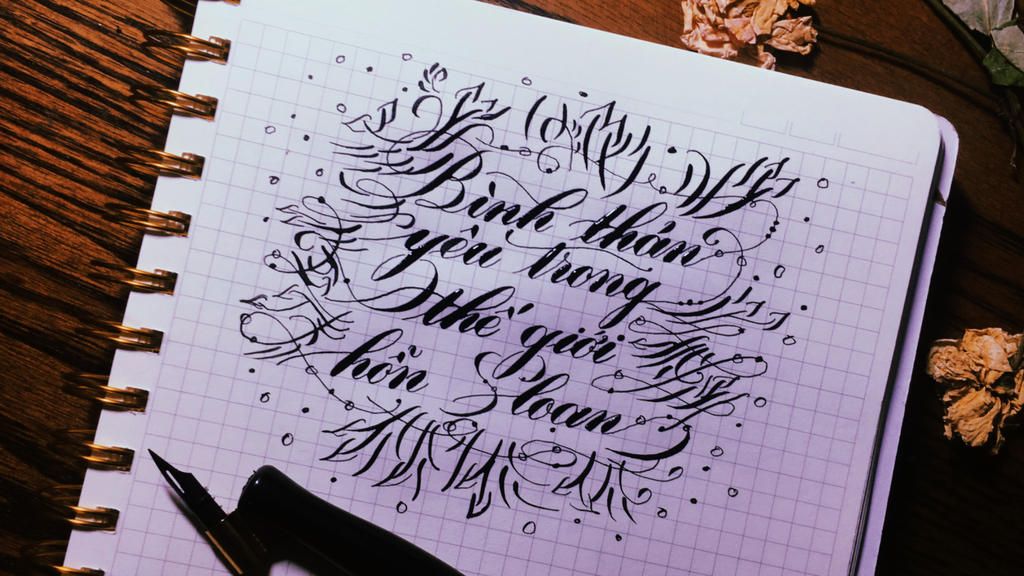 Bình thản
yêu trong
thế giới
hỗn loạn